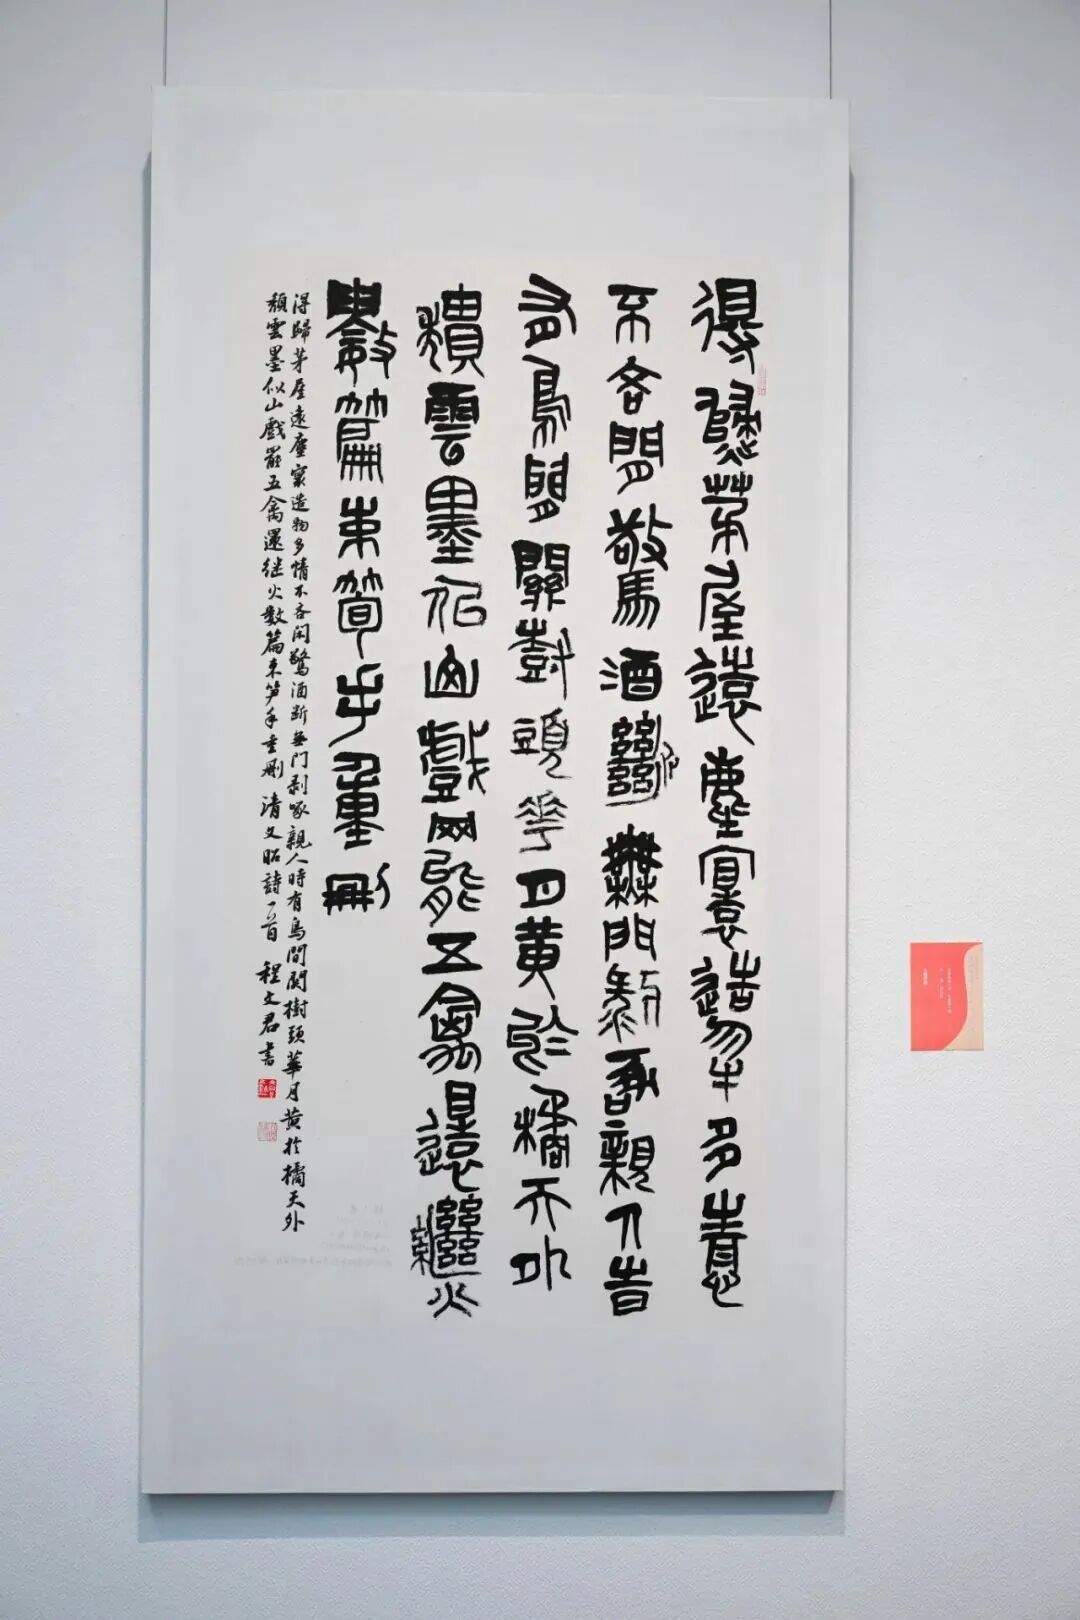 得歸茅屋遠塵寰造物多情
不吝閒驚酒斷無門剝啄親人時
有鳥間關樹頭華月黄於橘天外
穨雲墨似山戲罷五禽還繼火
數篇束筍手重刪
得歸茅屋遠塵寰造物多情不吝闲驚酒断無門剥啄親人時有鳥間関樹頭華月黄於橘天外
頹雲墨似山戲罷五禽還继火數篇束笋手重刪 清文昭詩一首 程文君書